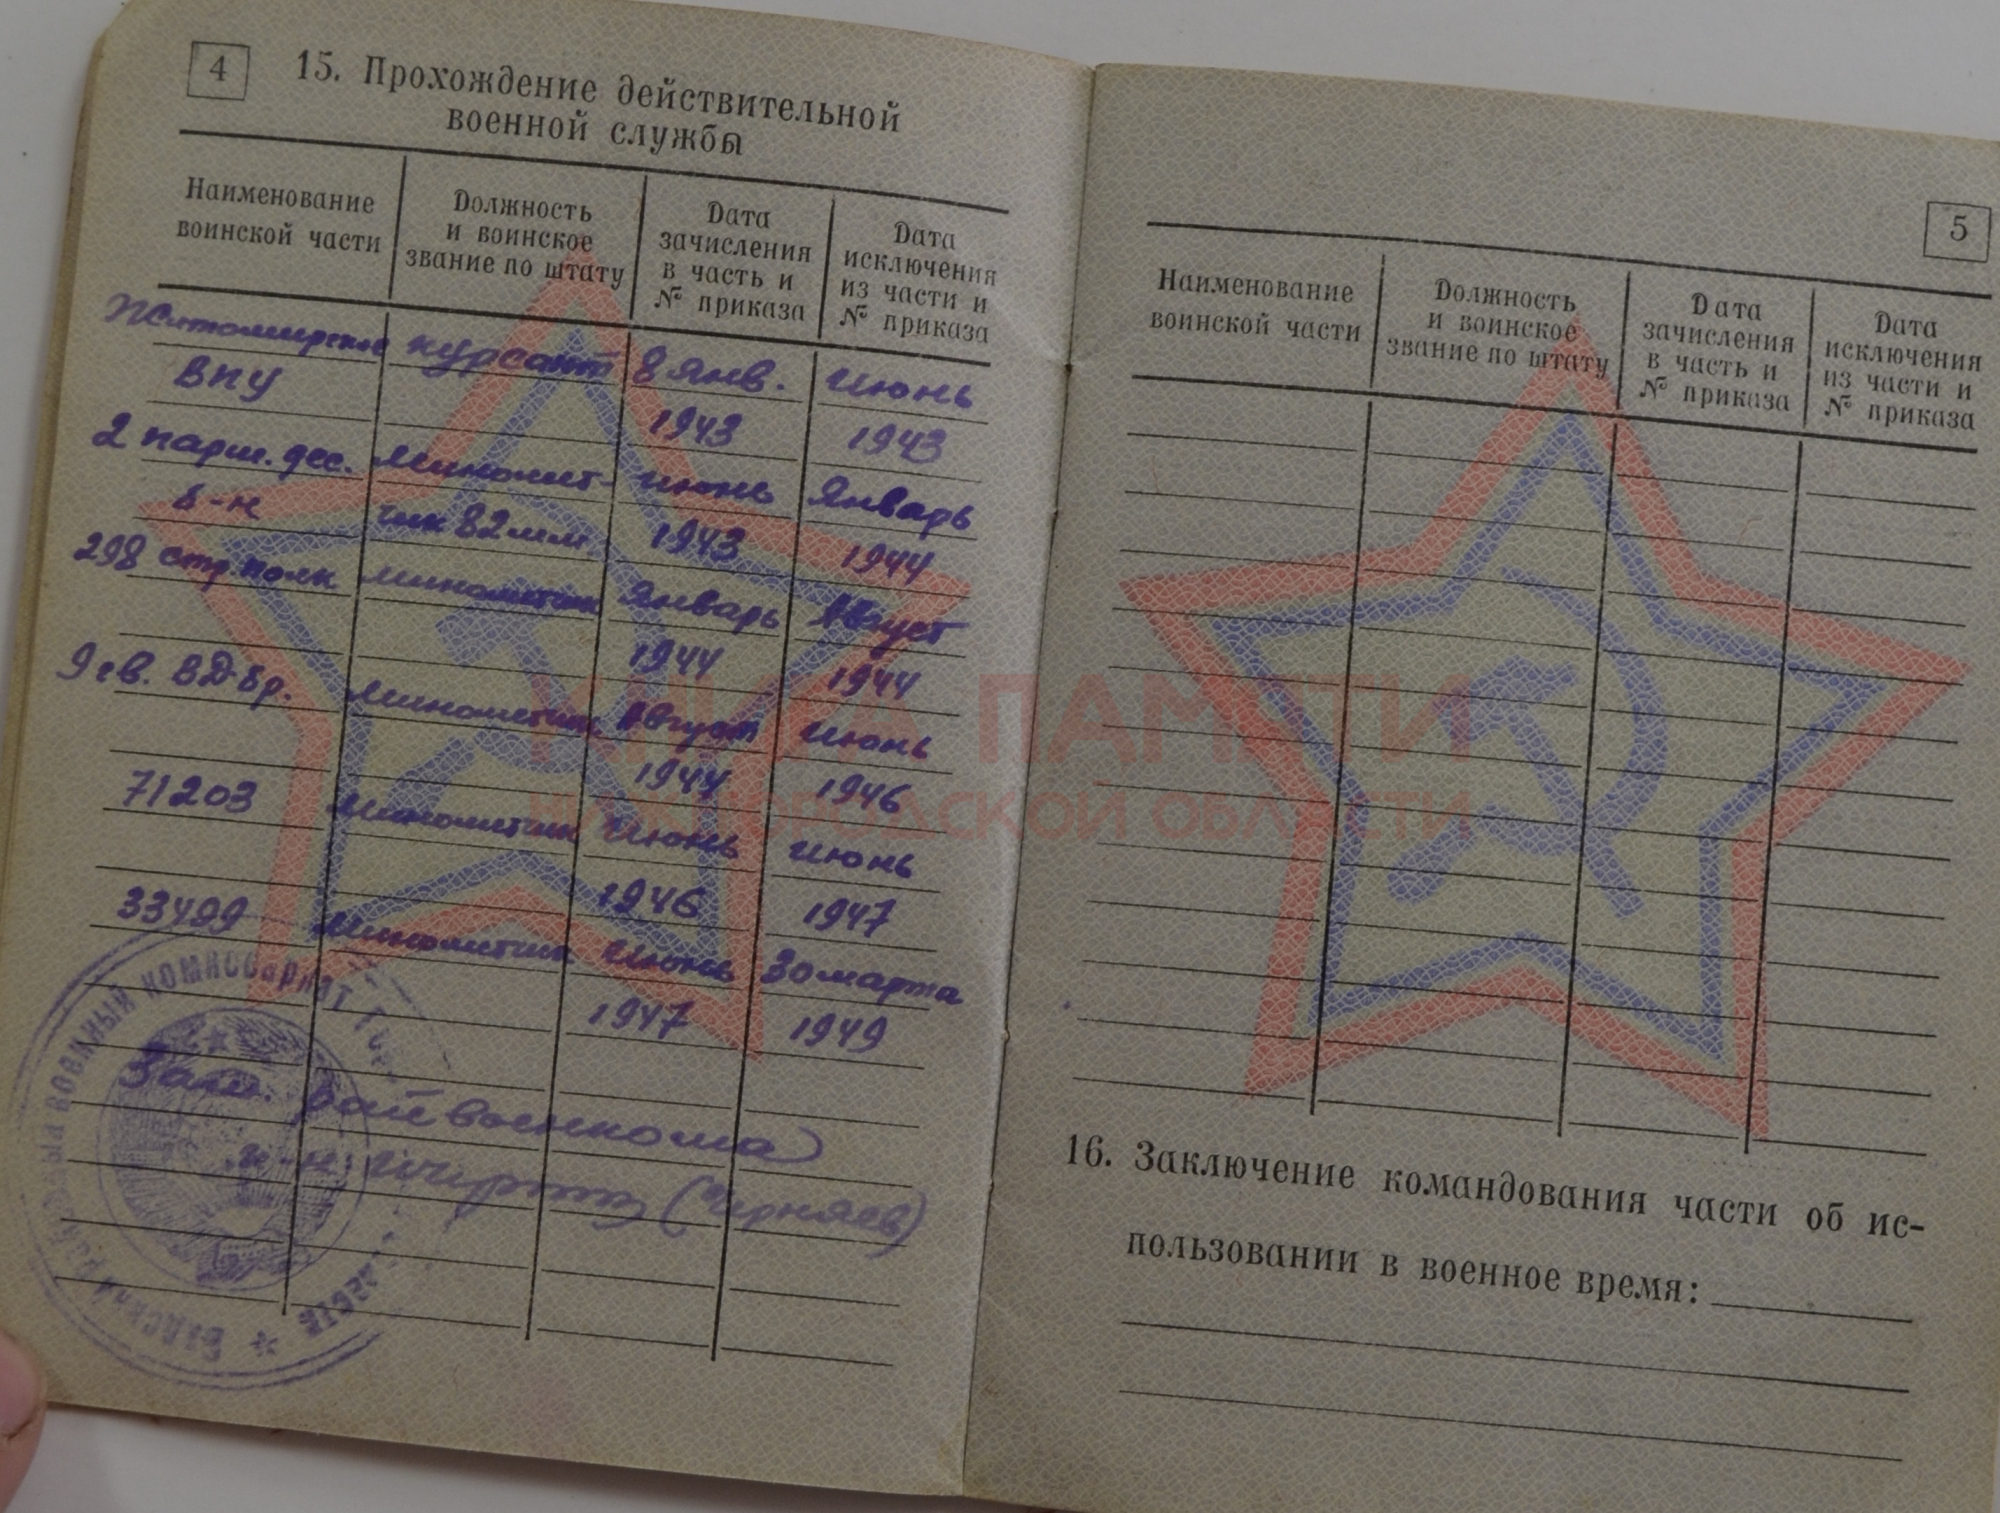 4
15. Прохождение действительной
военной службы
Наименование
воинской части
Должность
и воинское
звание по штату
Дата
зачисления
в часть и
№ приказа
Дата
исключения
из части и
№ приказа
Житомирское курсант 8 Янв. июнь
ВПУ 1943 1943
2 париш. дес. миномет- июнь Январь
б-н чик 82 мм. 1943 1944
298 стр. полк минометчик Январь Август
1944 1944
9 гв. ВД. бр. минометчик Август июнь
1944 1946
71203 минометчик июнь июнь
1946 1947
33499 минометчик июнь 30 марта
1947 1949
Зам. райвоенкома
(Черняев)
военный комиссариат
КНИГА ПАМЯТИ
НИЖЕГОРОДСКОЙ ОБЛАСТИ
5
Наименование
воинской части
Должность
и воинское
звание по штату
Дата
зачисления
в часть и
№ приказа
Дата
исключения
из части и
№ приказа
16. Заключение командования части об ис-
пользовании в военное время: